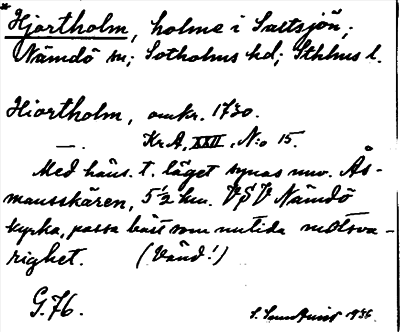 *Hjortholm, holme i Saltsjön;
Nämdö sn; Sotholms hd; Sthlms l.
Hiortholm, omkr. 1730.
— Kr.A. XXII, N:o 15.
Med häns. t. läget synas nuv. Ås-
mansskären, 5½ km. VSV Nämdö
kyrka, passa bäst som nutida motsva-
righet. (Vänd!)
G.76. 1936